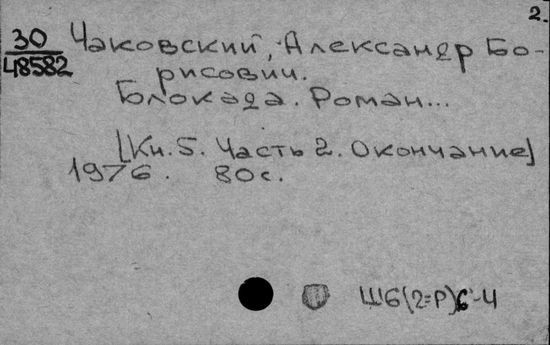 2.
30
48582
Чаковский, Александр Бо-
рисович.
Блокада. Роман...
[Кн. 5. Часть 2. Окончание]
1976. 80с.
Ш6(2=Р)6-Ч